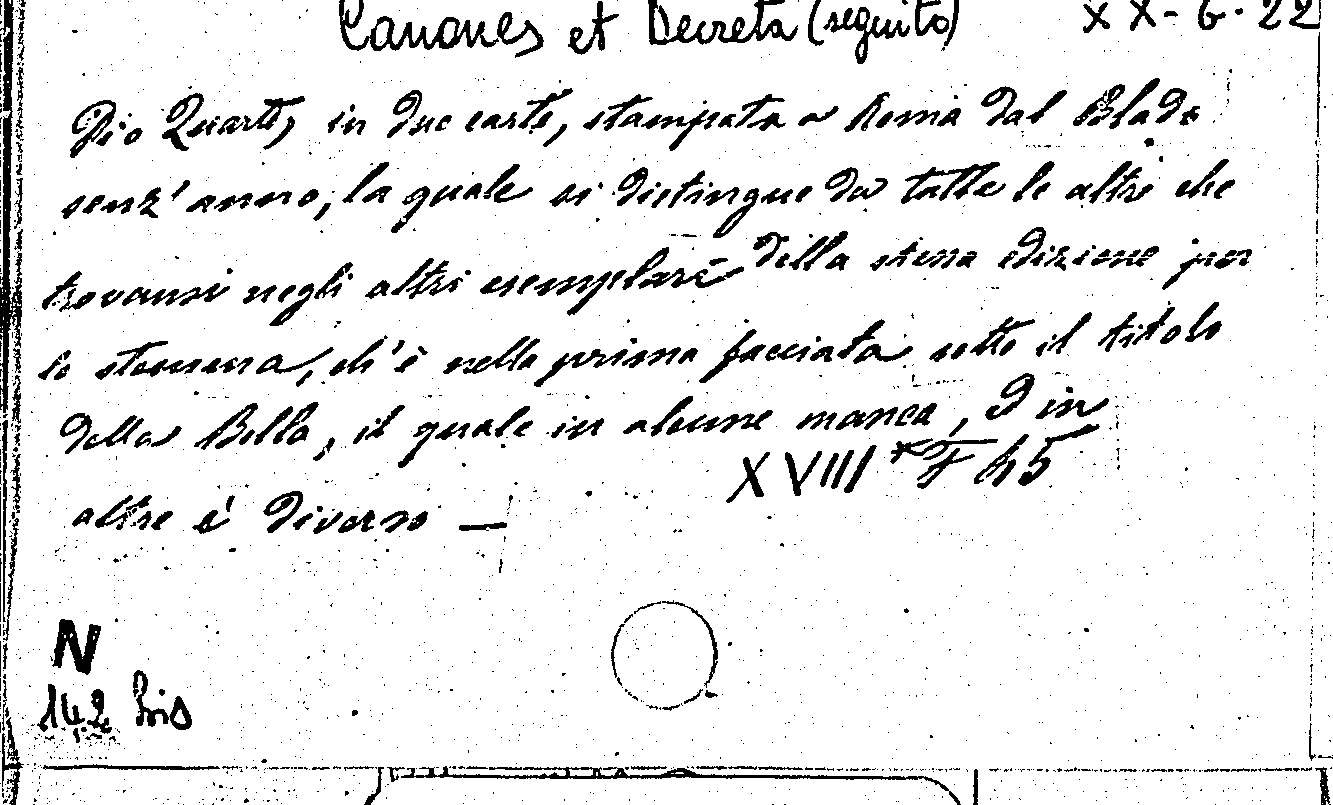 Canones et Decreta (seguito) XX-G-22
Pio Quarto, in due carte, stampata a Roma dal Blado
senz'anno, la quale si distingue da tutte le altre che
trovansi negli altri esemplari della stessa edizione per
lo stemma, ch'è nella prima facciata sotto il titolo
della Bolla, il quale in alcune manca, ed in
XVIII * F 45
altre è diverso —
N
142 bis